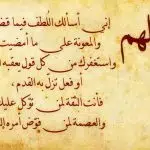 لهم
إني أسألك اللطف فيما
والمعونة على ما أمضيت
واستغفرك من كل قول يعقبه
أو فعل تزل به القدم ،
فأنت الثقة لمن توكل عليك
والعصمة لمن فوض أمره